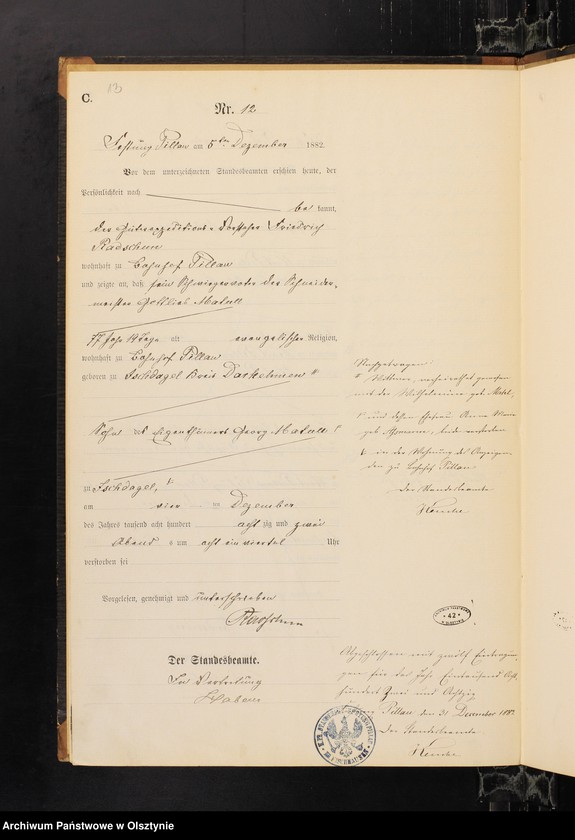 C.
Nr. 12
Festung Pillau am 5ten Dezember 1882.
Vor dem unterzeichneten Standesbeamten erschien heute, der
Persönlichkeit nach
be kannt,
der Güterexpeditions-Vorsteher Friedrich
Radschun
wohnhaft zu Bahnhof Pillau
und zeigte an, daß sein Schwiegervater der Schneider-
meister Gottlieb Matull
77 Jahr 14 Tage alt evangelischer Religion,
wohnhaft zu Bahnhof Pillau
geboren zu Ischdagel Kreis Darkehmen
Sohn des Eigenthümers Georg Matull
zu Ischdagel,
am vier ten Dezember
des Jahres tausend acht hundert acht zig und zwei
Abends um acht ein viertel Uhr
verstorben sei
Vorgelesen, genehmigt und unterschrieben
Radschun
Der Standesbeamte.
In Vertretung
Nachgetragen:
Wittwer, verheirathet gewesen
mit der Wilhelmine geb.
und dessen Ehefrau Anna
geb. beide verstorben
in der Wohnung des Anzeigen-
den zu Bahnhof Pillau
Der Standesbeamte
42
Abgeschlossen mit zwölf Eintragun-
gen für das Jahr Eintausend Acht
hundert Zwei und Achtzig
Pillau, den 31 Dezember 1882
Der Standesbeamte
Archiwum Państwowe w Olsztynie